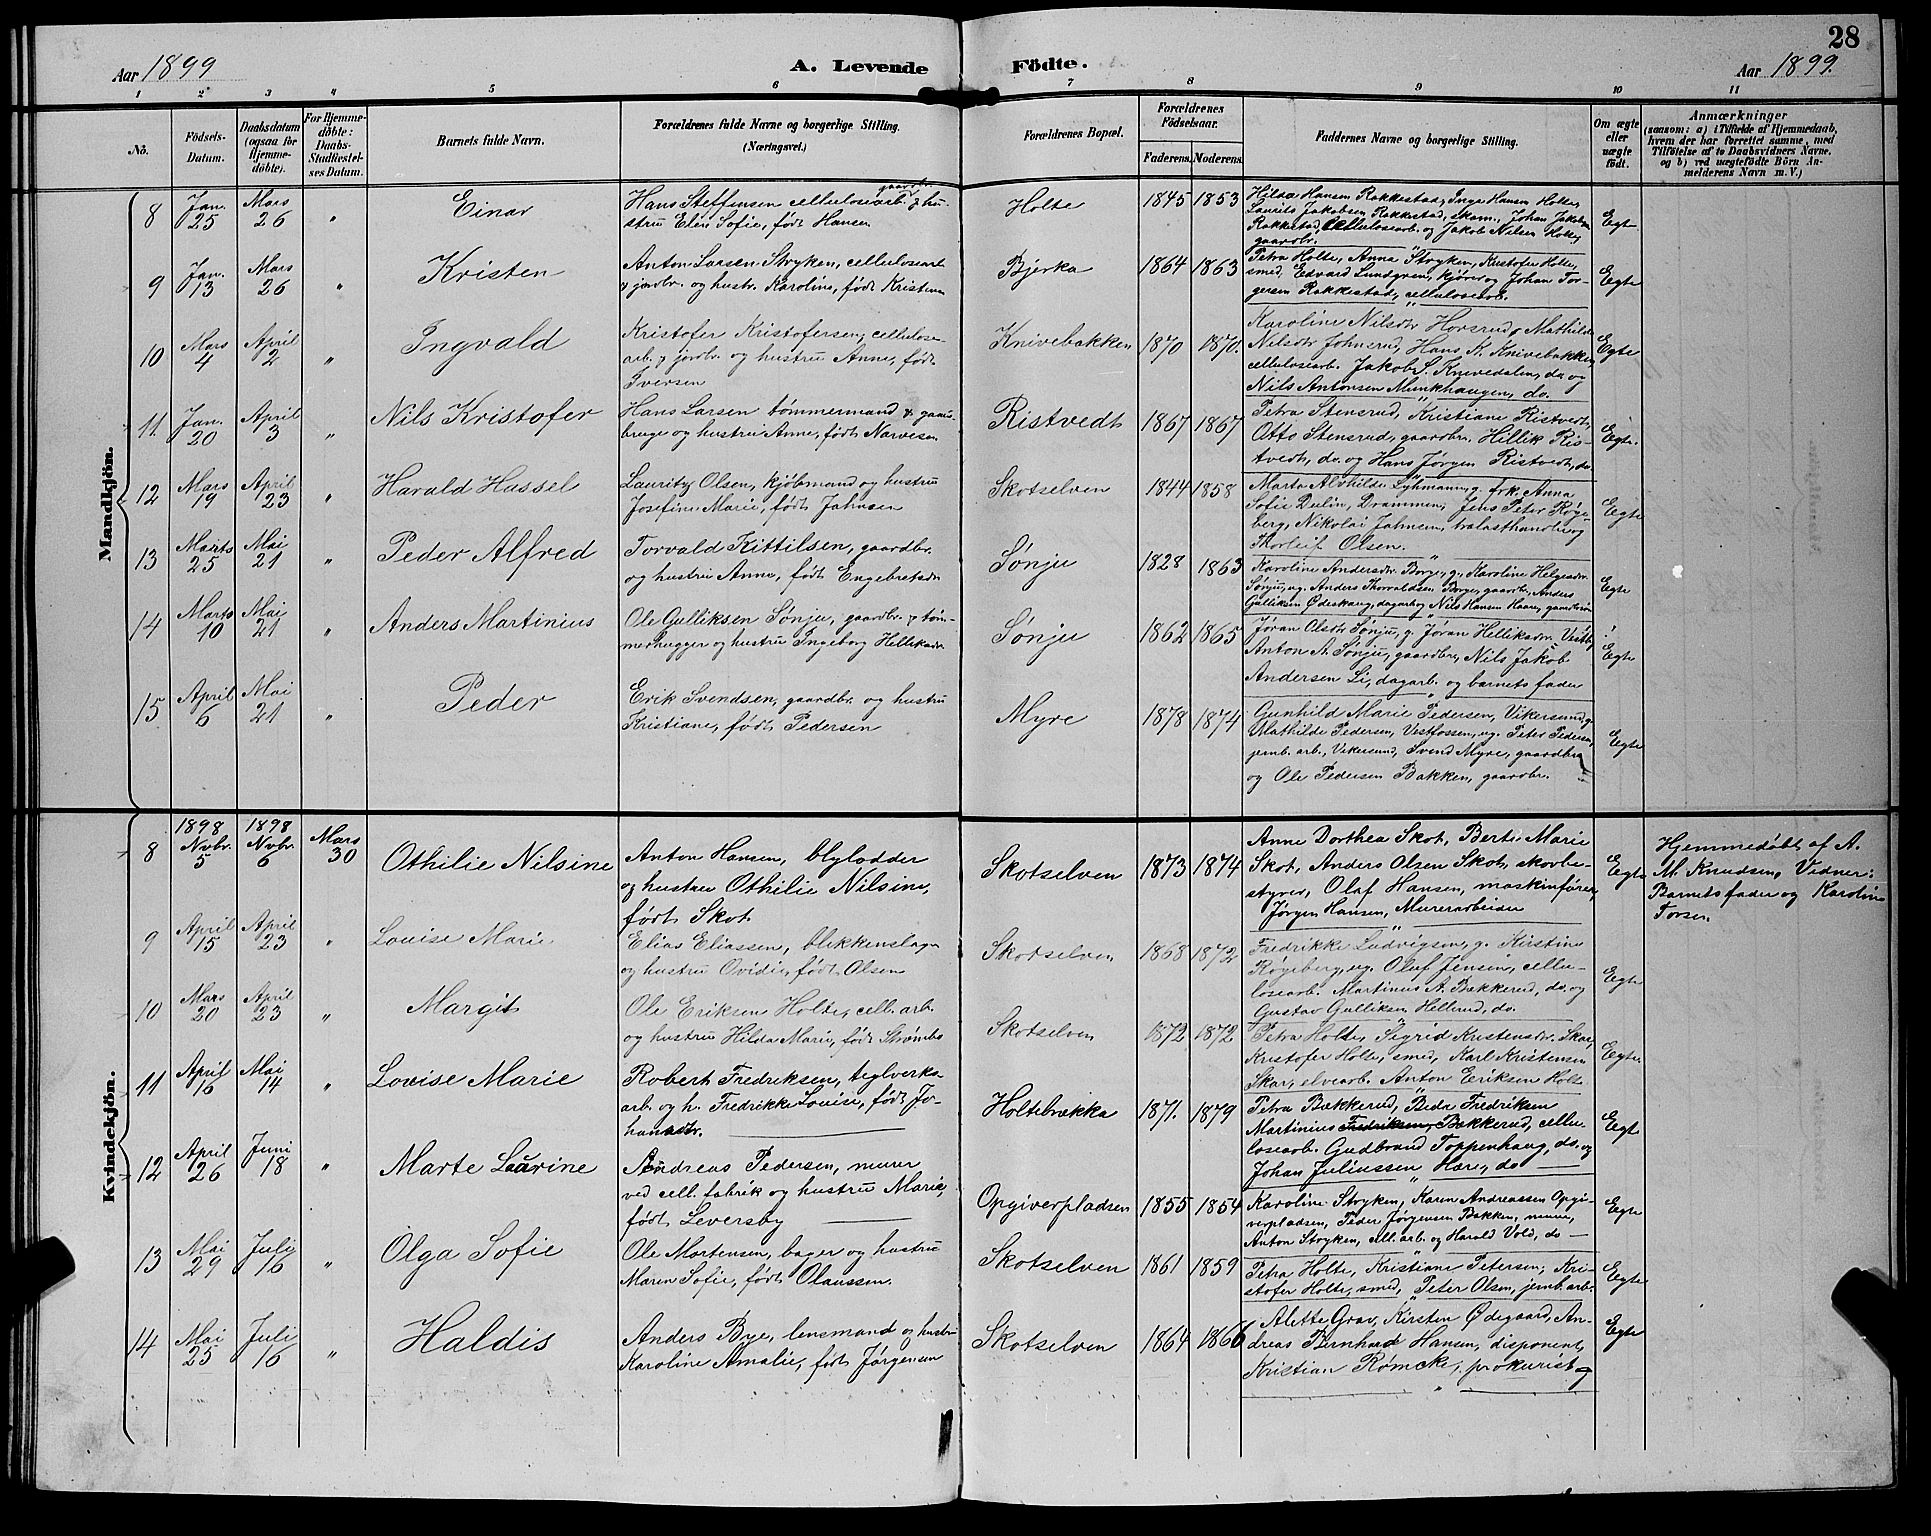 28
Aar 1899
A. Levende Födte.
Aar 1899.
1 2 3 4 5 6 7 8 9 10 11
No.
Födsels-Datum.
Daabsdatum (ogsaa for Hjemme-döbte).
For Hjemme-döbte: Daabs-Stadfæstel-ses Datum.
Barnets fulde Navn.
Forældrenes fulde Navne og borgerlige Stilling.
(Næringsvei.)
Forældrenes Bopæl.
Forældrenes Födselsaar.
Faderens. Moderens.
Faddernes Navne og borgerlige Stilling.
Om ægte eller uægte födt.
Anmærkninger
(saasom: a) i Tilfælde af Hjemmedaab,
hvem der har forrettet samme, med
Tilföielse af to Daabsvidners Navne,
og b) ved uægtefödte Börn An-
melderens Navn m. V.)
Mandkjön.
8 Jan. 25 Mars 26 " Einar
Hans Steffensen cellulosearb. & gaardbr. hu-
stru Eleri Sofie, født Hansen
Holte 1845 1853
Hilda Hansen Rakkestad, Inga Hansen Holte,
Laurits Jakobsen Rakkestad, skom., Johan Jakobsen
Rakkestad, cellulosearb. og Jakob Nilsen Holte,
gaardbr.
Egte
9 Jan. 13 Mars 26 " Kristen
Anton Larsen Stryken, cellulosearb.
& jordbr. og hustr. Karoline, født Kristensen
Bjerka 1864 1863
Petra Holte, Anna Stryken, Kristofer Holte,
smed, Edvard Lundgren, kjører og Johan Tor-
gersen Rakkestad, cellulosearb.
Egte
10 Mars 4 April 2 " Ingvald
Kristofer Kristofersen, cellulose-
arb. & jordbr. og hustru Anne, født
Iversen
Knivebakken 1870 1870.
Karoline Nilsdtr Horsrud, Mathilde
Nilsdtr Johnsrud, Hans K. Knivebakken,
cellulosearb. Jakob S. Knivedalen, do. og
Nils Antonsen Munkhaugen, do.
Egte
11. Jan. 20 April 3 " Nils Kristofer
Hans Larsen tømmermand & gaard-
bruge og hustru Anne, født Narvesen
Ristvedt 1867 1867
Petra Stensrud, Kristiane Ristvedt,
Otto Stensrud, gaardbr., Hillik Ris-
tvedt, do. og Hans Jørgen Ristvedt, do.
Egte.
12 Mars 19 April 23 " Harald Hassel
Lauritz Olsen, kjøbmand og hustru
Josefine Marie, født Jahnsen
Skotselven 1844 1858
Marta Alshilde Lyhmann, g. frk. Anna
Sofie Dulin, Drammen, Jens Peter Røge-
berg, Nikolai Jahnsen, balasthandl. og
Thorleif Olsen.
Egte
13 Marts 25 Mai 21 " Peder Alfred
Torvald Kittilsen, gaardbr.
og hustru Anne, født Engebretsdr.
Sønju 1828 1863
Karoline Andersdr. Borge, g. Karoline Helgesdr.
Sønju, ug. Anders Thorvaldsen Borge, gaardbr., Anders
Gulliksen Ødeskaug, dagarb. og Nils Hansen Haare, gaardbruger
Egte
14 Marts 10 Mai 21 " Anders Martinius
Ole Gulliksen Sønju, gaardbr. & tøm-
merhugger og hustru Ingeborg Helliksdr.
Sønju 1862 1865
Jøran Olsdtr Sønju, g. Jøran Helliksdr. Vestby,
Anton A. Sønju, gaardbr., Nils Jakob
Andersen Li, dagarb. og barnets fader
Egte
15 April 6 Mai 21 " Peder
Erik Svendsen, gaardbr. og hustru
Kristiane, født Pedersen
Myre 1878 1874
Gunhild Marie Pedersen, Vikersund, g.
Mathilde Pedersen, Vestfossen, ug. Peter Pedersen,
jernb. arb., Vikersund, Svend Myre, gaardbr.
og Ole Pedersen Bakken, gaardbr.
Egte
Kvindekjön.
8 1898 Novbr. 5 1898 Novbr. 6 Mars 30 Othilie Nilsine
Anton Hansen, blylodder
og hustru Othilie Nilsine,
født Skot
Skotselven 1873 1874
Anne Dorthea Skot, Berte Marie
Skot, Anders Olsen Skot, skovbe-
styrer, Olaf Hansen, maskinfører,
Jørgen Hansen, Murerarbeider
Egte
Hjemmedøbt af A.
M. Knudsen, Vidner:
Barnets fader og Karoline
Torsen.
9 April 15 April 23 " Lovise Marie
Elias Eliassen, blikkenslager
og hustru Ovidie, født Olsen
Skotselven 1868 1872
Fredrikke Ludvigsen, g. Kirstine
Røgeberg, ug. Oluf Jensen, cellu-
losearb. Martinus A. Bækkerud, do. og
Gustav Gulliksen Hellerud, do.
Egte
10 Mars 20 April 23 " Margit
Ole Eriksen Holte, cell. arb.
og hustru Hilda Marie, født Strømbo
Skotselven 1872 1872
Petra Holte, Sigrid Kristensdr. Skar,
Kristofer Holte, smed, Karl Kristensen
Skar, elvearb. Anton Eriksen Holte
Egte
11 April 16 Mai 14 " Lovise Marie
Robert Fredriksen, teglverks-
arb. og h. Fredrikke Lovise, født Jo-
hansdtr.
Holtebrækka 1871. 1879
Petra Bækkerud, Beda Fredriksen
Martinius Fredriksen, Bækkerud, cellu-
losearb. Gudbrand Toppenhaug, do. og
Johan Juliussen Hære, do
Egte
12 April 26 Juni 18 " Marte Laurine
Andreas Pedersen, murer
ved cell. fabrik og hustru Marie,
født Leversby
Opgiverpladsen 1855 1854
Karoline Stryken, Karen Andreassen Opgi-
verpladsen, Peder Jørgensen Bakken, murer,
Anton Stryken, cell. arb. og Harald Vold, do
Egte
13 Mai 29 Juli 16 " Olga Sofie
Ole Mortensen, bager og hustru
Maren Sofie, født Olaussen.
Skotselven 1861 1859
Petra Holte, Kristiane Petersen, Kri-
stofer Holte, smed, Peter Olsen, jernb. arb.
Egte
14 Mai 25 Juli 16 " Haldis
Anders Bye, lensmand og hustru
Karoline Amalie, født Jørgensen
Skotselven 1864 1866
Alette Grav, Kirsten Ødegaard, An-
dreas Bernhard Hansen, disponent,
Kristian Rømcke, prokurist og
"
Egte